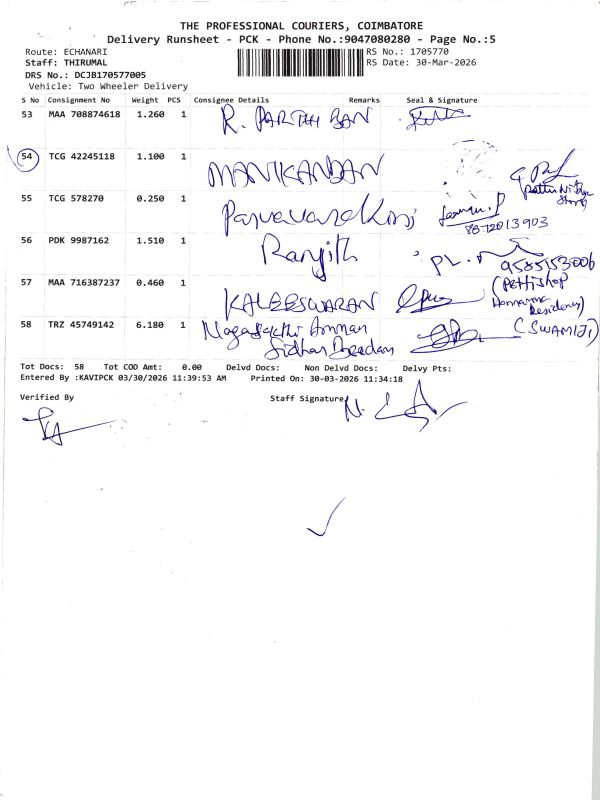 THE PROFESSIONAL COURIERS, COIMBATORE
Delivery Runsheet - PCK - Phone No.:9047080280 - Page No.:5
Route: ECHANARI RS No.: 1705770
Staff: THIRUMAL RS Date: 30-Mar-2026
DRS No.: DCJB170577005
Vehicle: Two Wheeler Delivery
S No Consignment No Weight PCS Consignee Details Remarks Seal & Signature
53 MAA 708874618 1.260 1 R. PARTHIBAN
54 TCG 42245118 1.100 1 MANIKANDAN
55 TCG 578270 0.250 1
56 PDK 9987162 1.510 1 Ranjith 9585153006
57 MAA 716387237 0.460 1 KALEESWARAN (Pettishop Residency)
58 TRZ 45749142 6.180 1 Nagasakthi Amman (SWAMIJI)
Tot Docs: 58 Tot COD Amt: 0.00 Delvd Docs: Non Delvd Docs: Delvy Pts:
Entered By :KAVIPCK 03/30/2026 11:39:53 AM Printed On: 30-03-2026 11:34:18
Verified By Staff Signature